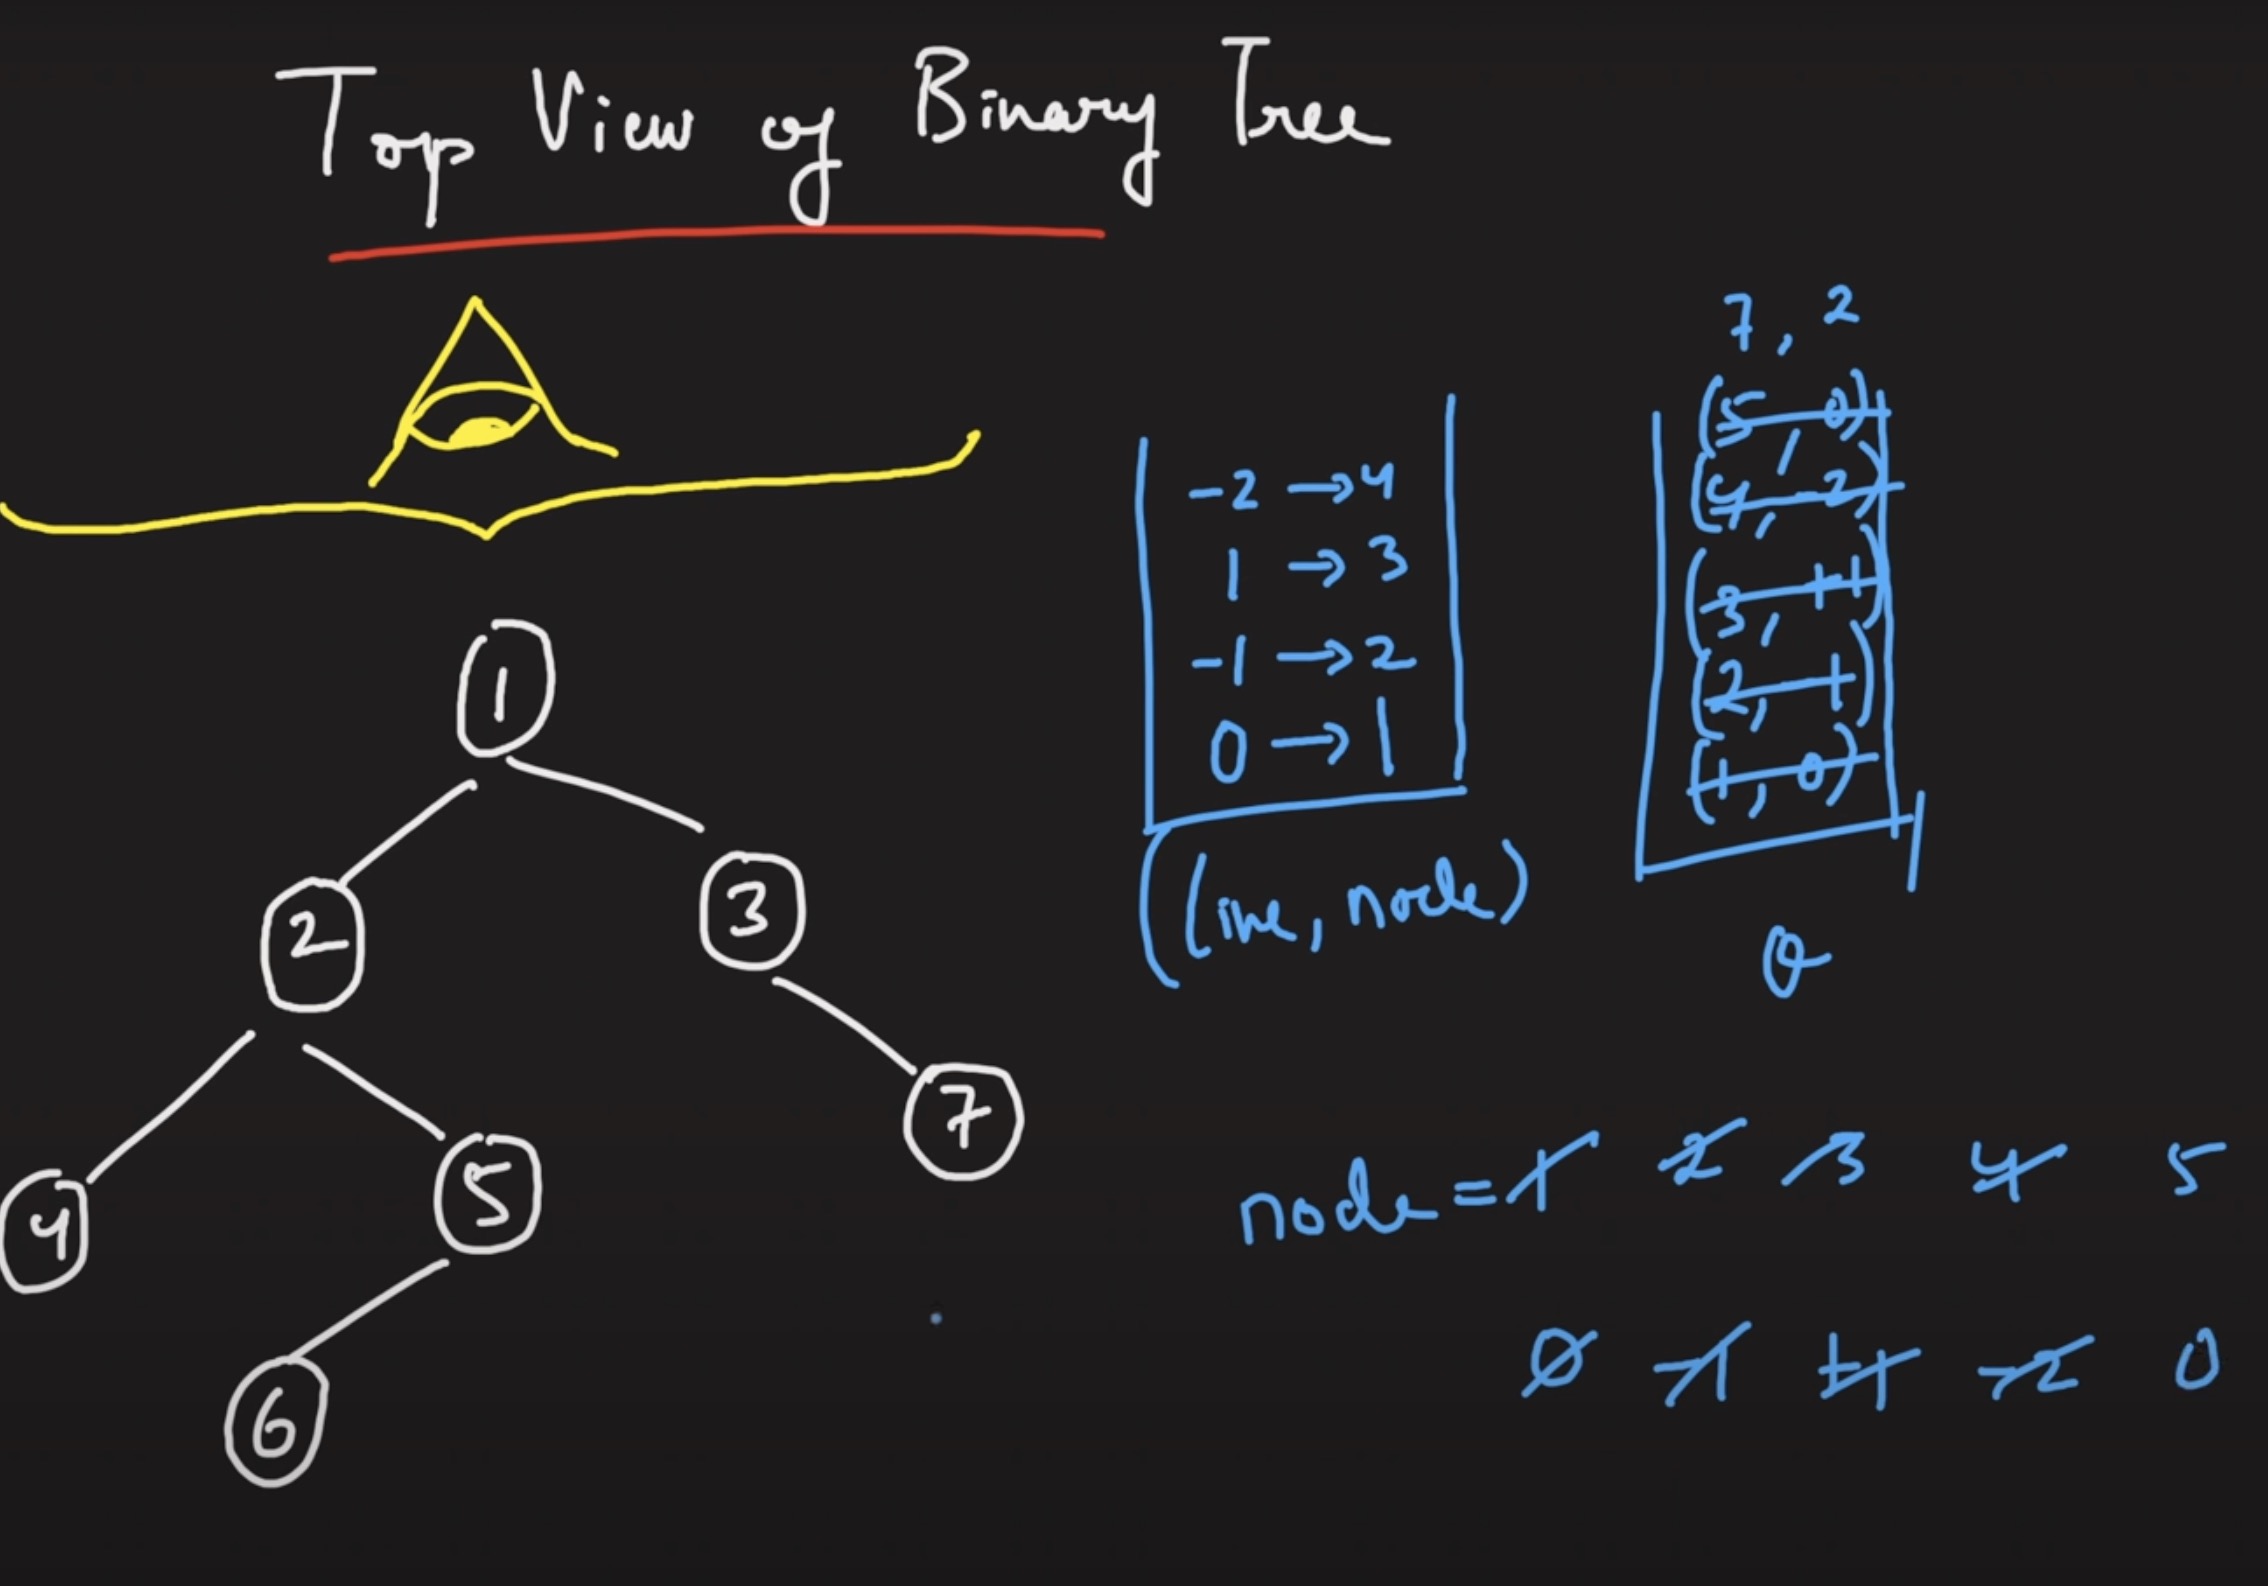 Top View of Binary Tree
1
2
3
4
5
7
6
-2 → 4
1 → 3
-1 → 2
0 → 1
(Line, node)
7, 2
(5, 0)
(4, -2)
(3, +1)
(2, -1)
(1, 0)
Q
node = 1 2 3 4 5
0 -1 +1 -2 0